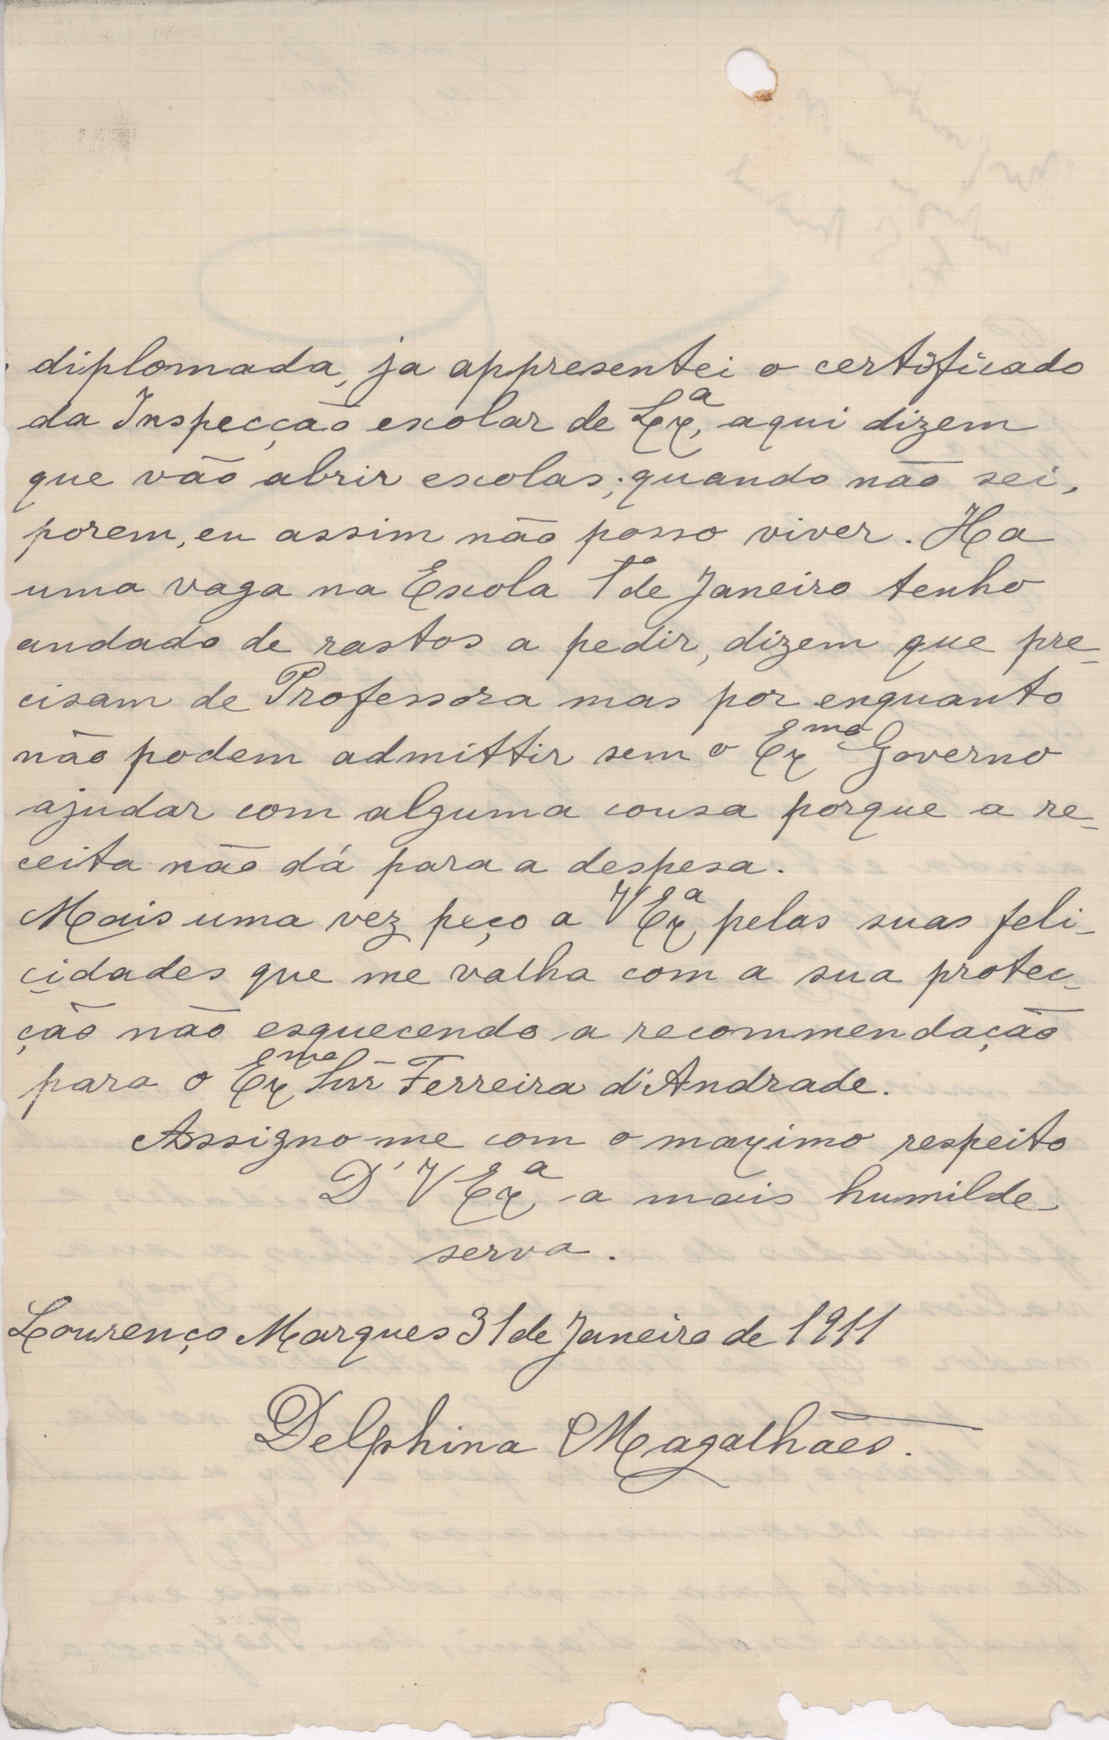 diplomada, ja appresentei o certificado
da Inspecção escolar de Lxª, aqui dizem
que vão abrir escolas; quando não sei,
porem, eu assim não posso viver. Ha
uma vaga na Escola 1º de Janeiro tenho
andado de rastos a pedir, dizem que pre-
cisam de Professora mas por enquanto
não podem admittir sem o Exmo Governo
ajudar com alguma cousa porque a re-
ceita não dá para a despesa.
Mais uma vez peço a V Exª, pelas suas feli-
cidades que me valha com a sua protec-
ção não esquecendo a recommendação
para o Exmo Snr Ferreira d'Andrade.
Assigno-me com o maximo respeito
D' V Exª a mais humilde
serva.
Lourenço Marques 31 de Janeiro de 1911
Delphina Magalhães.